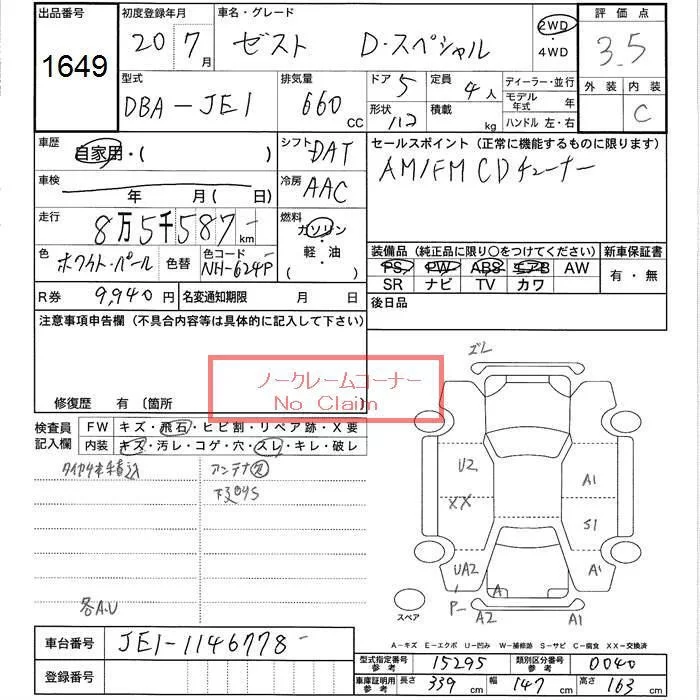 出品番号 初度登録年月 車名・グレード 評価点
1649 20 7月 ゼスト D・スペシャル 2WD・4WD 3.5
型式 排気量 ドア 5 定員 4人 ディーラー・並行 外装 内装
DBA-JE1 660 CC 形状 積載 kg モデル年式 年 C
ハンドル 左・右
車歴 自家用・( ) シフト DAT セールスポイント(正常に機能するものに限ります)
AM/FM CDチューナー
車検 年 月(日) 冷房 AAC
走行 8万5千587km 燃料 ガソリン・軽・油( )
装備品(純正品に限り〇をつけてください) 新車保証書
色 ホワイト・パール 色替 色コード NH-624P
PS PW ABS エアB AW 有・無
SR ナビ TV カワ
R券 9,940円 名変通知期限 月 日 後日品
注意事項申告欄(不具合内容等は具体的に記入して下さい)
ノークレームコーナー
No Claim
修復歴 有〔箇所
検査員記入欄 FW キズ・飛石・ヒビ割・リペア跡・X要
内装 キズ・汚レ・コゲ・穴・スレ・キレ・破レ
アンテナ欠
下廻りS
各A.U
ズレ
U2 A1
XX S1
UA2 A A1
P A2 A1
スペア
車台番号 JE1-1146778
A-キズ E-エクボ U-凹み W-補修跡 S-サビ C-腐食 XX-交換済
型式指定番号 参考 15295 類別区分番号 参考 0040
登録番号
車庫証明用 参考 長さ 339cm 幅 147cm 高さ 163cm